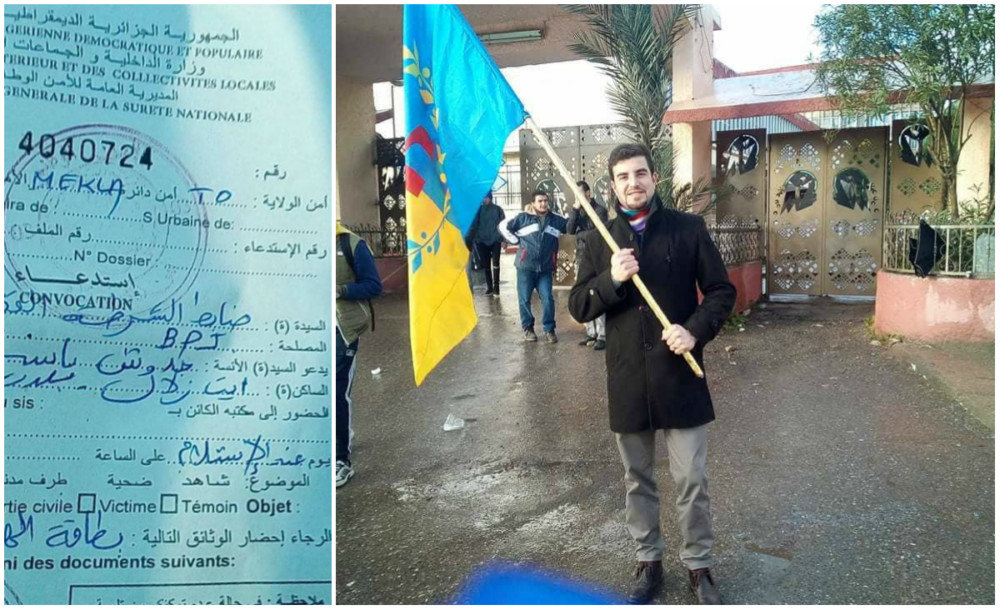 الجمهورية الجزائرية الديمقراطيـ
GERIENNE DEMOCRATIQUE ET POPULAIRE
وزارة الداخلية و الجماعات
TERIEUR ET DES COLLECTIVITES LOCALES
المديرية العامة للأمن الوطـ
GENERALE DE LA SURETE NATIONALE
4040724
رقم :
أمن الولاية : TO أمن دائر MEKLA
ira de : S Urbaine de:
رقم الإستدعاء : رقم الملف
N° Dossier :
إستدعـــاء
CONVOCATION
السيدة (ة) : ضابط الشرطة
المصلحة : BPJ
يدعو السيد(ة) الأنسة :
الساكن(ة) : ايت
u sis :
الحضور إلى مكتبه الكائن بـ
يوم عند الإستلام على الساعة
الموضوع: شاهد ضحية طرف مدنـ
tie civile Victime Témoin Objet :
الرجاء إحضار الوثائق التالية : بطاقة
ni des documents suivants:
ملاحظة : في حالة عدم